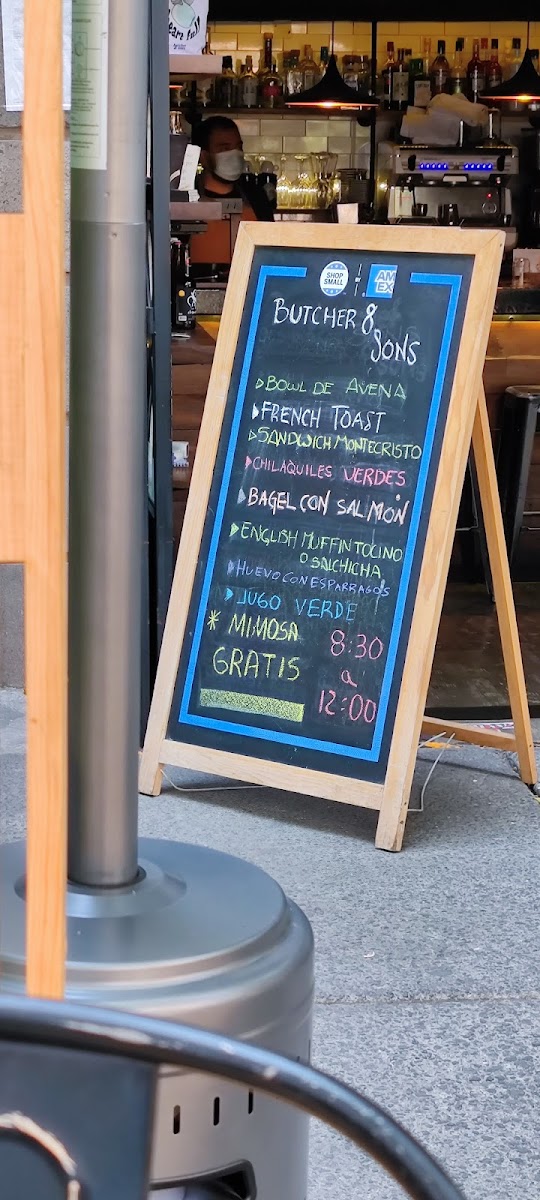 SHOP
SMALL
AM
EX
BUTCHER &
SONS
BOWL DE AVENA
FRENCH TOAST
SANDWICH MONTECRISTO
CHILAQUILES VERDES
BAGEL CON SALMON
ENGLISH MUFFIN TOCINO
O SALCHICHA
HUEVO CON ESPARRAGOS
JUGO VERDE
* MIMOSA
GRATIS
8:30
a
12:00